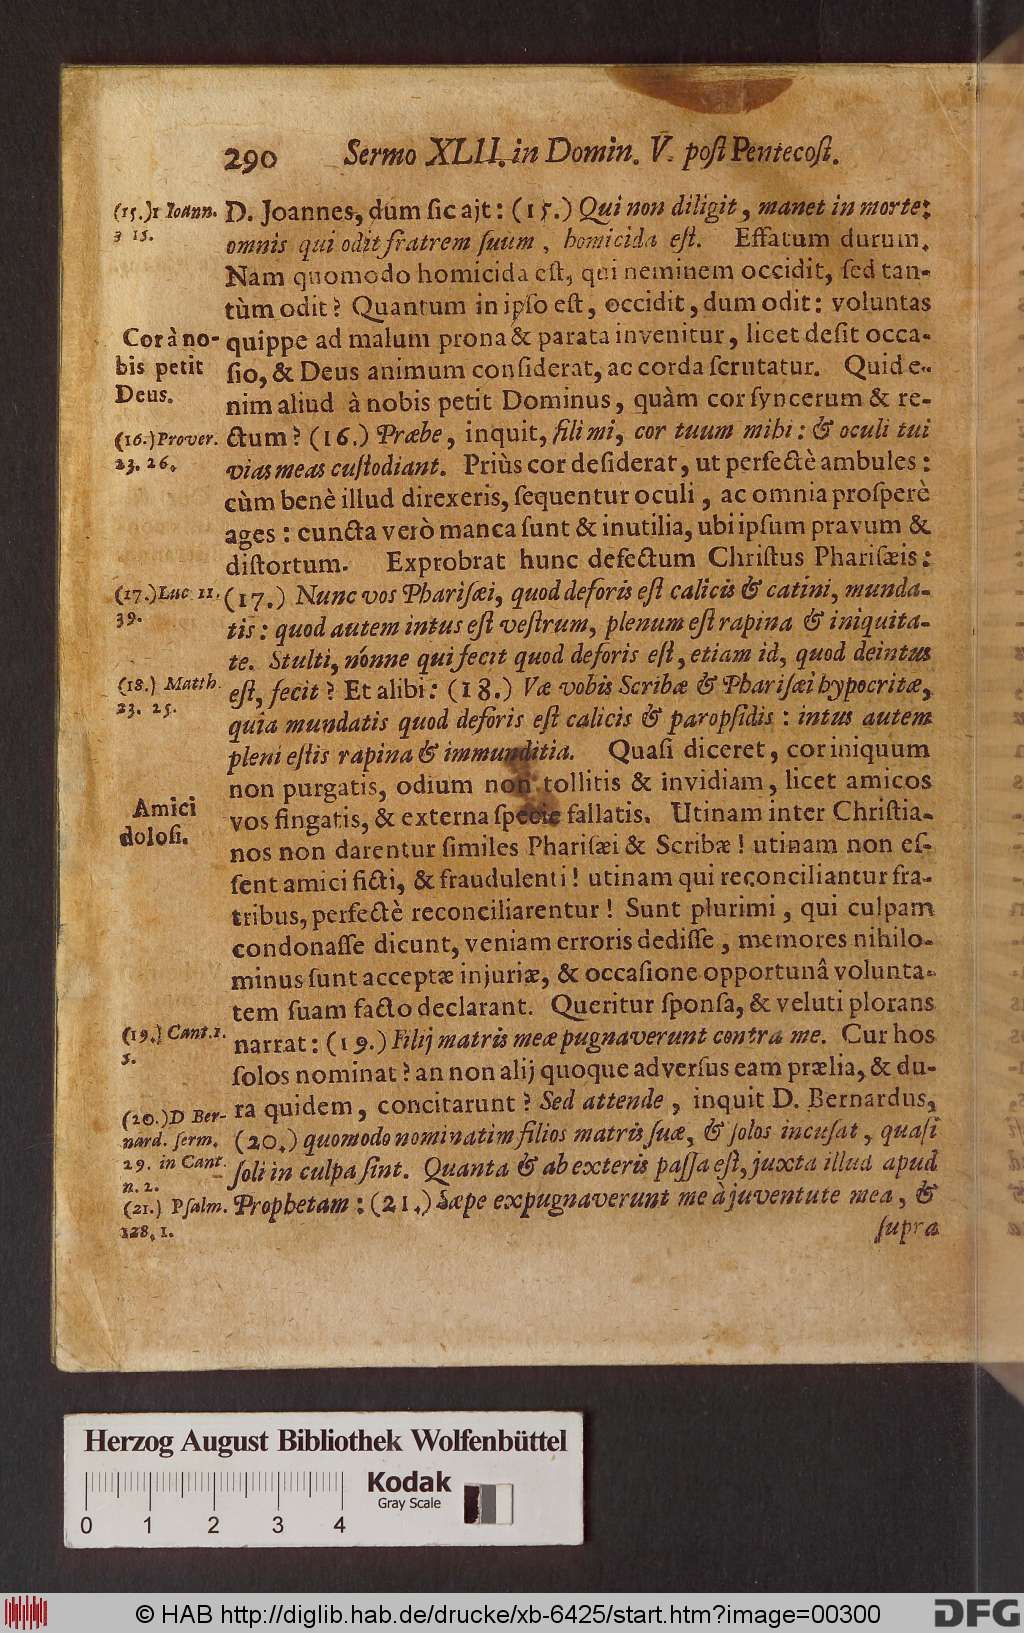 290 Sermo XLII. in Domin. V. poſt Pentecoſt.
(15.) 1 Ioann.
3 15.
D. Joannes, dum ſic ajt: (15.) Qui non diligit, manet in morte:
omnis qui odit fratrem ſuum, homicida eſt. Effatum durum.
Nam quomodo homicida eſt, qui neminem occidit, ſed tan-
tùm odit? Quantum in ipſo eſt, occidit, dum odit: voluntas
Cor à no-
bis petit
Deus.
quippe ad malum prona & parata invenitur, licet deſit occa-
ſio, & Deus animum conſiderat, ac corda ſcrutatur. Quid e-
nim aliud à nobis petit Dominus, quàm cor ſyncerum & re-
(16.) Prover.
23. 26.
ctum? (16.) Præbe, inquit, fili mi, cor tuum mihi: & oculi tui
vias meas cuſtodiant. Priùs cor deſiderat, ut perfectè ambules:
cùm benè illud direxeris, ſequentur oculi, ac omnia proſperè
ages: cuncta verò manca ſunt & inutilia, ubi ipſum pravum &
diſtortum. Exprobrat hunc defectum Chriſtus Phariſæis:
(17.) Luc 11.
39.
(17.) Nunc vos Phariſæi, quod deforis eſt calicis & catini, munda-
tis: quod autem intus eſt veſtrum, plenum eſt rapina & iniquita-
te. Stulti, nónne qui fecit quod deforis eſt, etiam id, quod deintus
(18.) Matth.
23. 25.
eſt, fecit? Et alibi: (18.) Væ vobis Scribæ & Phariſæi hypocritæ,
quia mundatis quod deforis eſt calicis & paropſidis: intus autem
pleni eſtis rapina & immunditia. Quaſi diceret, cor iniquum
non purgatis, odium non tollitis & invidiam, licet amicos
Amici
doloſi.
vos fingatis, & externa ſpecie fallatis. Utinam inter Chriſtia-
nos non darentur ſimiles Phariſæi & Scribæ! utinam non eſ-
ſent amici ficti, & fraudulenti! utinam qui reconciliantur fra-
tribus, perfectè reconciliarentur! Sunt plurimi, qui culpam
condonaſſe dicunt, veniam erroris dediſſe, memores nihilo-
minus ſunt acceptæ injuriæ, & occaſione opportunâ volunta-
tem ſuam facto declarant. Queritur ſponſa, & veluti plorans
(19.) Cant. 1.
5.
narrat: (19.) Filij matris meæ pugnaverunt contra me. Cur hos
ſolos nominat? an non alij quoque adverſus eam prælia, & du-
ra quidem, concitarunt? Sed attende, inquit D. Bernardus,
(20.) D Ber-
nard. ſerm.
29. in Cant.
n. 2.
(20.) quomodo nominatim filios matris ſuæ, & ſolos incuſat, quaſi
ſoli in culpa ſint. Quanta & ab exteris paſſa eſt, juxta illud apud
(21.) Pſalm.
128. 1.
Prophetam: (21.) Sæpe expugnaverunt me à juventute mea, &
ſupra
Herzog August Bibliothek Wolfenbüttel
Kodak
Gray Scale
0 1 2 3 4
© HAB http://diglib.hab.de/drucke/xb-6425/start.htm?image=00300
DFG